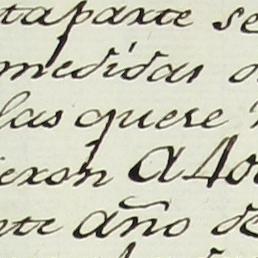 taparte se
medidas
las quere
iexon A 40
nte año de